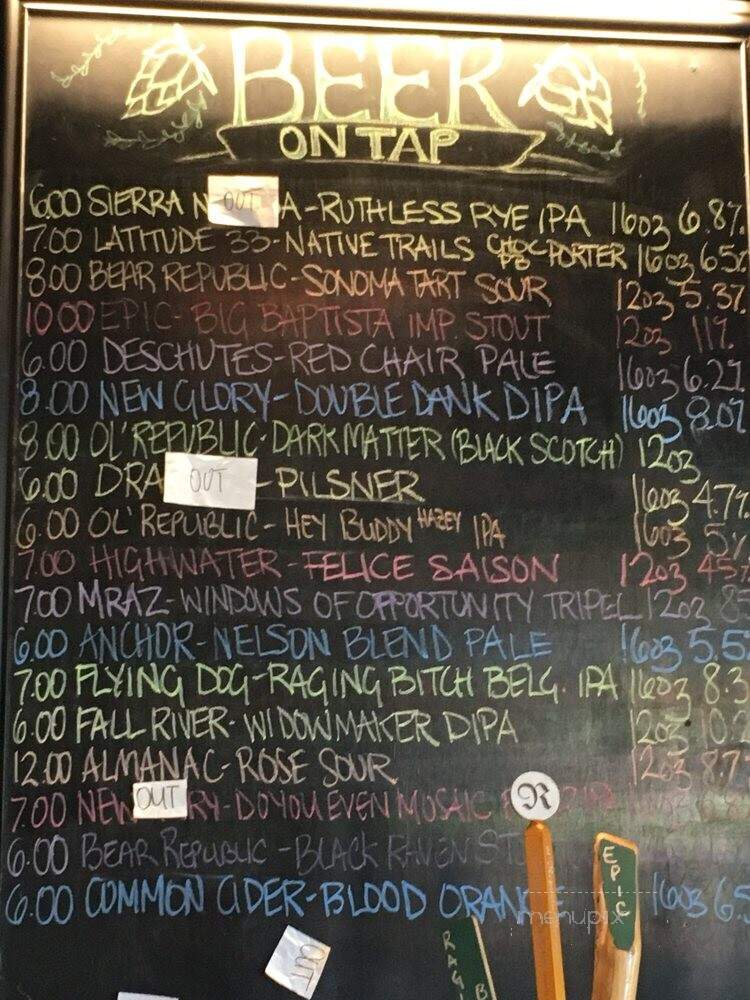 BEER
ON TAP
6.00 SIERRA N OUT A-RUTHLESS RYE IPA 16oz 6.8%
7.00 LATITUDE 33-NATIVE TRAILS CHOC PB PORTER 16oz 6.5%
8.00 BEAR REPUBLIC-SONOMA TART SOUR 12oz 5.3%
10.00 EPIC-BIG BAPTISTA IMP. STOUT 12oz 11%
6.00 DESCHUTES-RED CHAIR PALE 16oz 6.2%
8.00 NEW GLORY-DOUBLE DANK DIPA 16oz 8.0%
8.00 OL' REPUBLIC-DARK MATTER (BLACK SCOTCH) 12oz
6.00 DRA OUT -PILSNER 16oz 4.7%
6.00 OL' REPUBLIC-HEY BUDDY HAZEY IPA 16oz 5%
7.00 HIGHWATER-FELICE SAISON 12oz 45%
7.00 MRAZ-WINDOWS OF OPPORTUNITY TRIPEL 12oz
6.00 ANCHOR-NELSON BLEND PALE 16oz 5.5
7.00 FLYING DOG-RAGING BITCH BELG. IPA 16oz 8.3
6.00 FALL RIVER-WIDOWMAKER DIPA 12oz 10.2
12.00 ALMANAC-ROSE SOUR 12oz 8.7
7.00 NEW OUT RY-DO YOU EVEN MOSAIC
6.00 BEAR REPUBLIC-BLACK RAVEN ST
6.00 COMMON CIDER-BLOOD ORANGE 16oz 6.5
R
EPIC
menupix
RAGI
B
OUT